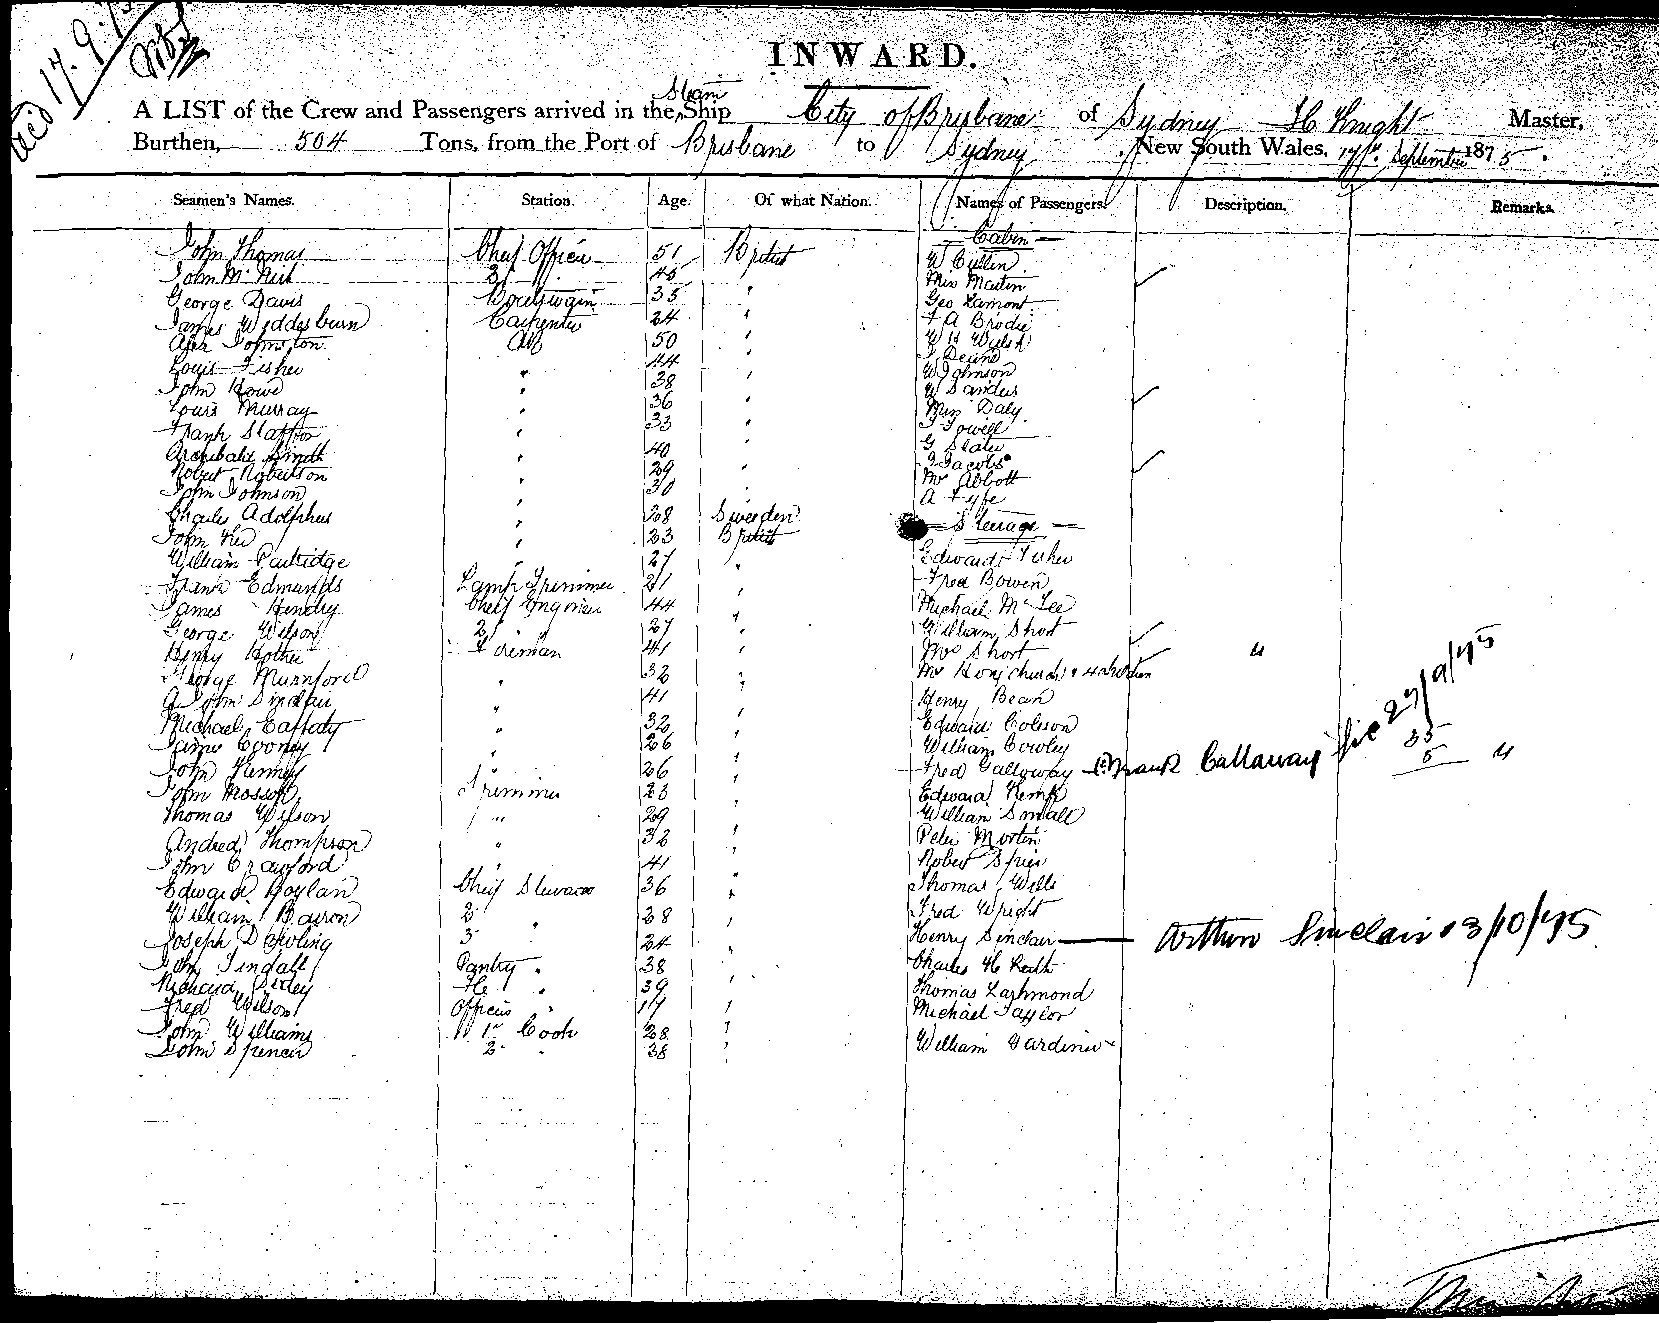 recd 17.9.75
INWARD.
A LIST of the Crew and Passengers arrived in the Steam Ship City of Brisbane of Sydney H Knight Master,
Burthen, 504 Tons, from the Port of Brisbane to Sydney, New South Wales, 17th September 1875.
Seamen's Names. Station. Age. Of what Nation. Names of Passengers. Description. Remarks.
Cabin
John Thomas Chief Officer 51 British W Cullen
John Mc 2 " 45 " Miss Martin
George Davis Boatswain 35 " Geo Lamont
James Weddesburn Carpenter 24 " F A Brodie
Alex Johnston AB 50 " W H Welsh
Louis Fisher " 44 " J Deine
John Howe " 38 " W Johnson
Louis Murray " 36 " W Sandes
Frank " 33 " Miss Daly
Archibald Smith " 40 " Slater
Robert Robertson " 29 " Jacobs
John Johnson " 30 " Mr Abbott
A Fyfe
Charles Adolphus " 28 Sweden Steerage
John " 23 British
William Partridge " 27 " Edward Fisher
Frank Edmunds Lamp Trimmer 21 " Fred Bowen
James Hendry Chief Engineer 44 " Michael McLee
George Wilson 2 " 27 " William Short
Henry Fireman 41 " Mrs Short "
George Munford " 32 " Mrs Honychurch & 4 children
John Sinclair " 41 " Henry Bean
Michael Caffery " 32 " Edward Coleson
James Cooney " 26 " William Cowley
John Kenney " 26 " Fred Galloway Frank Callaway 27/9/75 35 5 "
John Trimmer 23 " Edward Kemp
Thomas Wilson " 29 " William Small
Andred Thompson " 32 " Peter Morten
John Crawford " 41 " Robert Spier
Edward Boylan Chief Steward 36 " Thomas Wills
William Bairon 2 " 28 " Fred Wright
Joseph Dowling 3 " 24 " Henry Sinclair — Arthur Sinclair 13/10/75
John Tindall Pantry " 38 " Charles H Keith
Richard F C " 39 " Thomas Lashmond
Fred Wilson Officers " 17 " Michael Taylor
John Williams 1st Cook 28 "
John Spencer 2 " 38 " William Gardiner